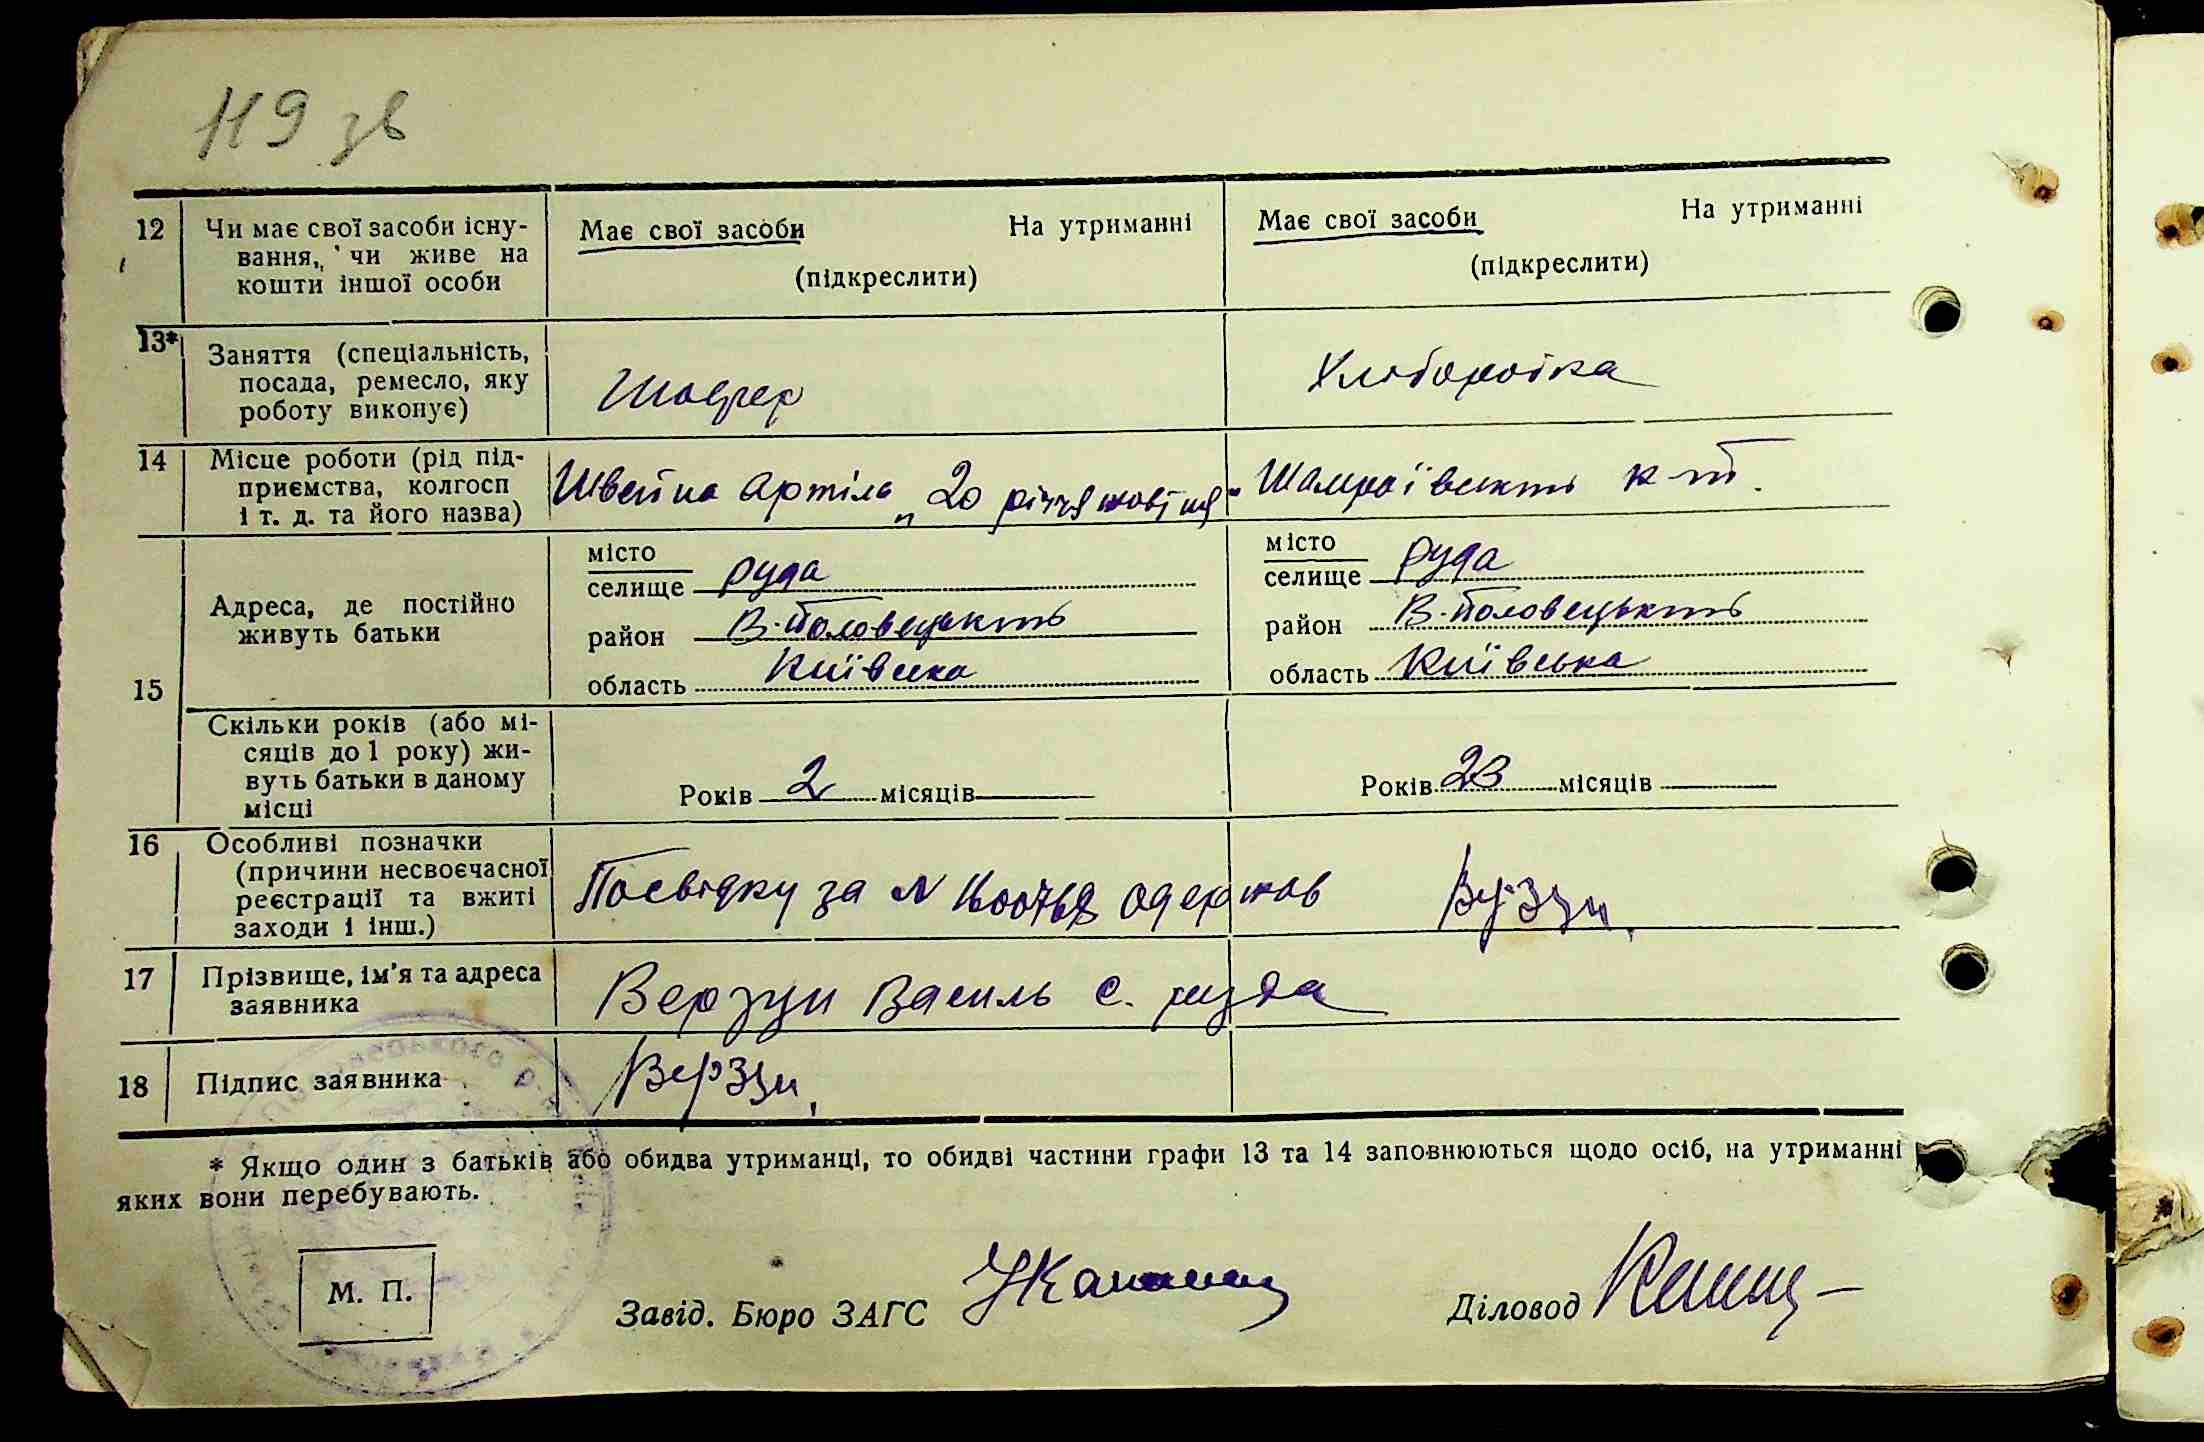 119 зв
12 Чи має свої засоби існу-
вання, чи живе на
кошти іншої особи
Має свої засоби На утриманні
(підкреслити)
Має свої засоби На утриманні
(підкреслити)
13* Заняття (спеціальність,
посада, ремесло, яку
роботу виконує)
Шофер
Хліборобка
14 Місце роботи (рід під-
приємства, колгосп
і т. д. та його назва)
Швейна Артіль „20 річчя жовтня"
Шамраївський к-т.
15 Адреса, де постійно
живуть батьки
місто
селище руда
район В-Половецький
область Київська
місто
селище руда
район В-Половецький
область Київська
Скільки років (або мі-
сяців до 1 року) жи-
вуть батьки в даному
місці
Років 2 місяців
Років 23 місяців
16 Особливі позначки
(причини несвоєчасної
реєстрації та вжиті
заходи і інш.)
Посвідку за № одержав
17 Прізвище, ім'я та адреса
заявника
Верзун Василь с. руда
18 Підпис заявника
Верзун
* Якщо один з батьків або обидва утриманці, то обидві частини графи 13 та 14 заповнюються щодо осіб, на утриманні
яких вони перебувають.
М. П.
Завід. Бюро ЗАГС
Діловод